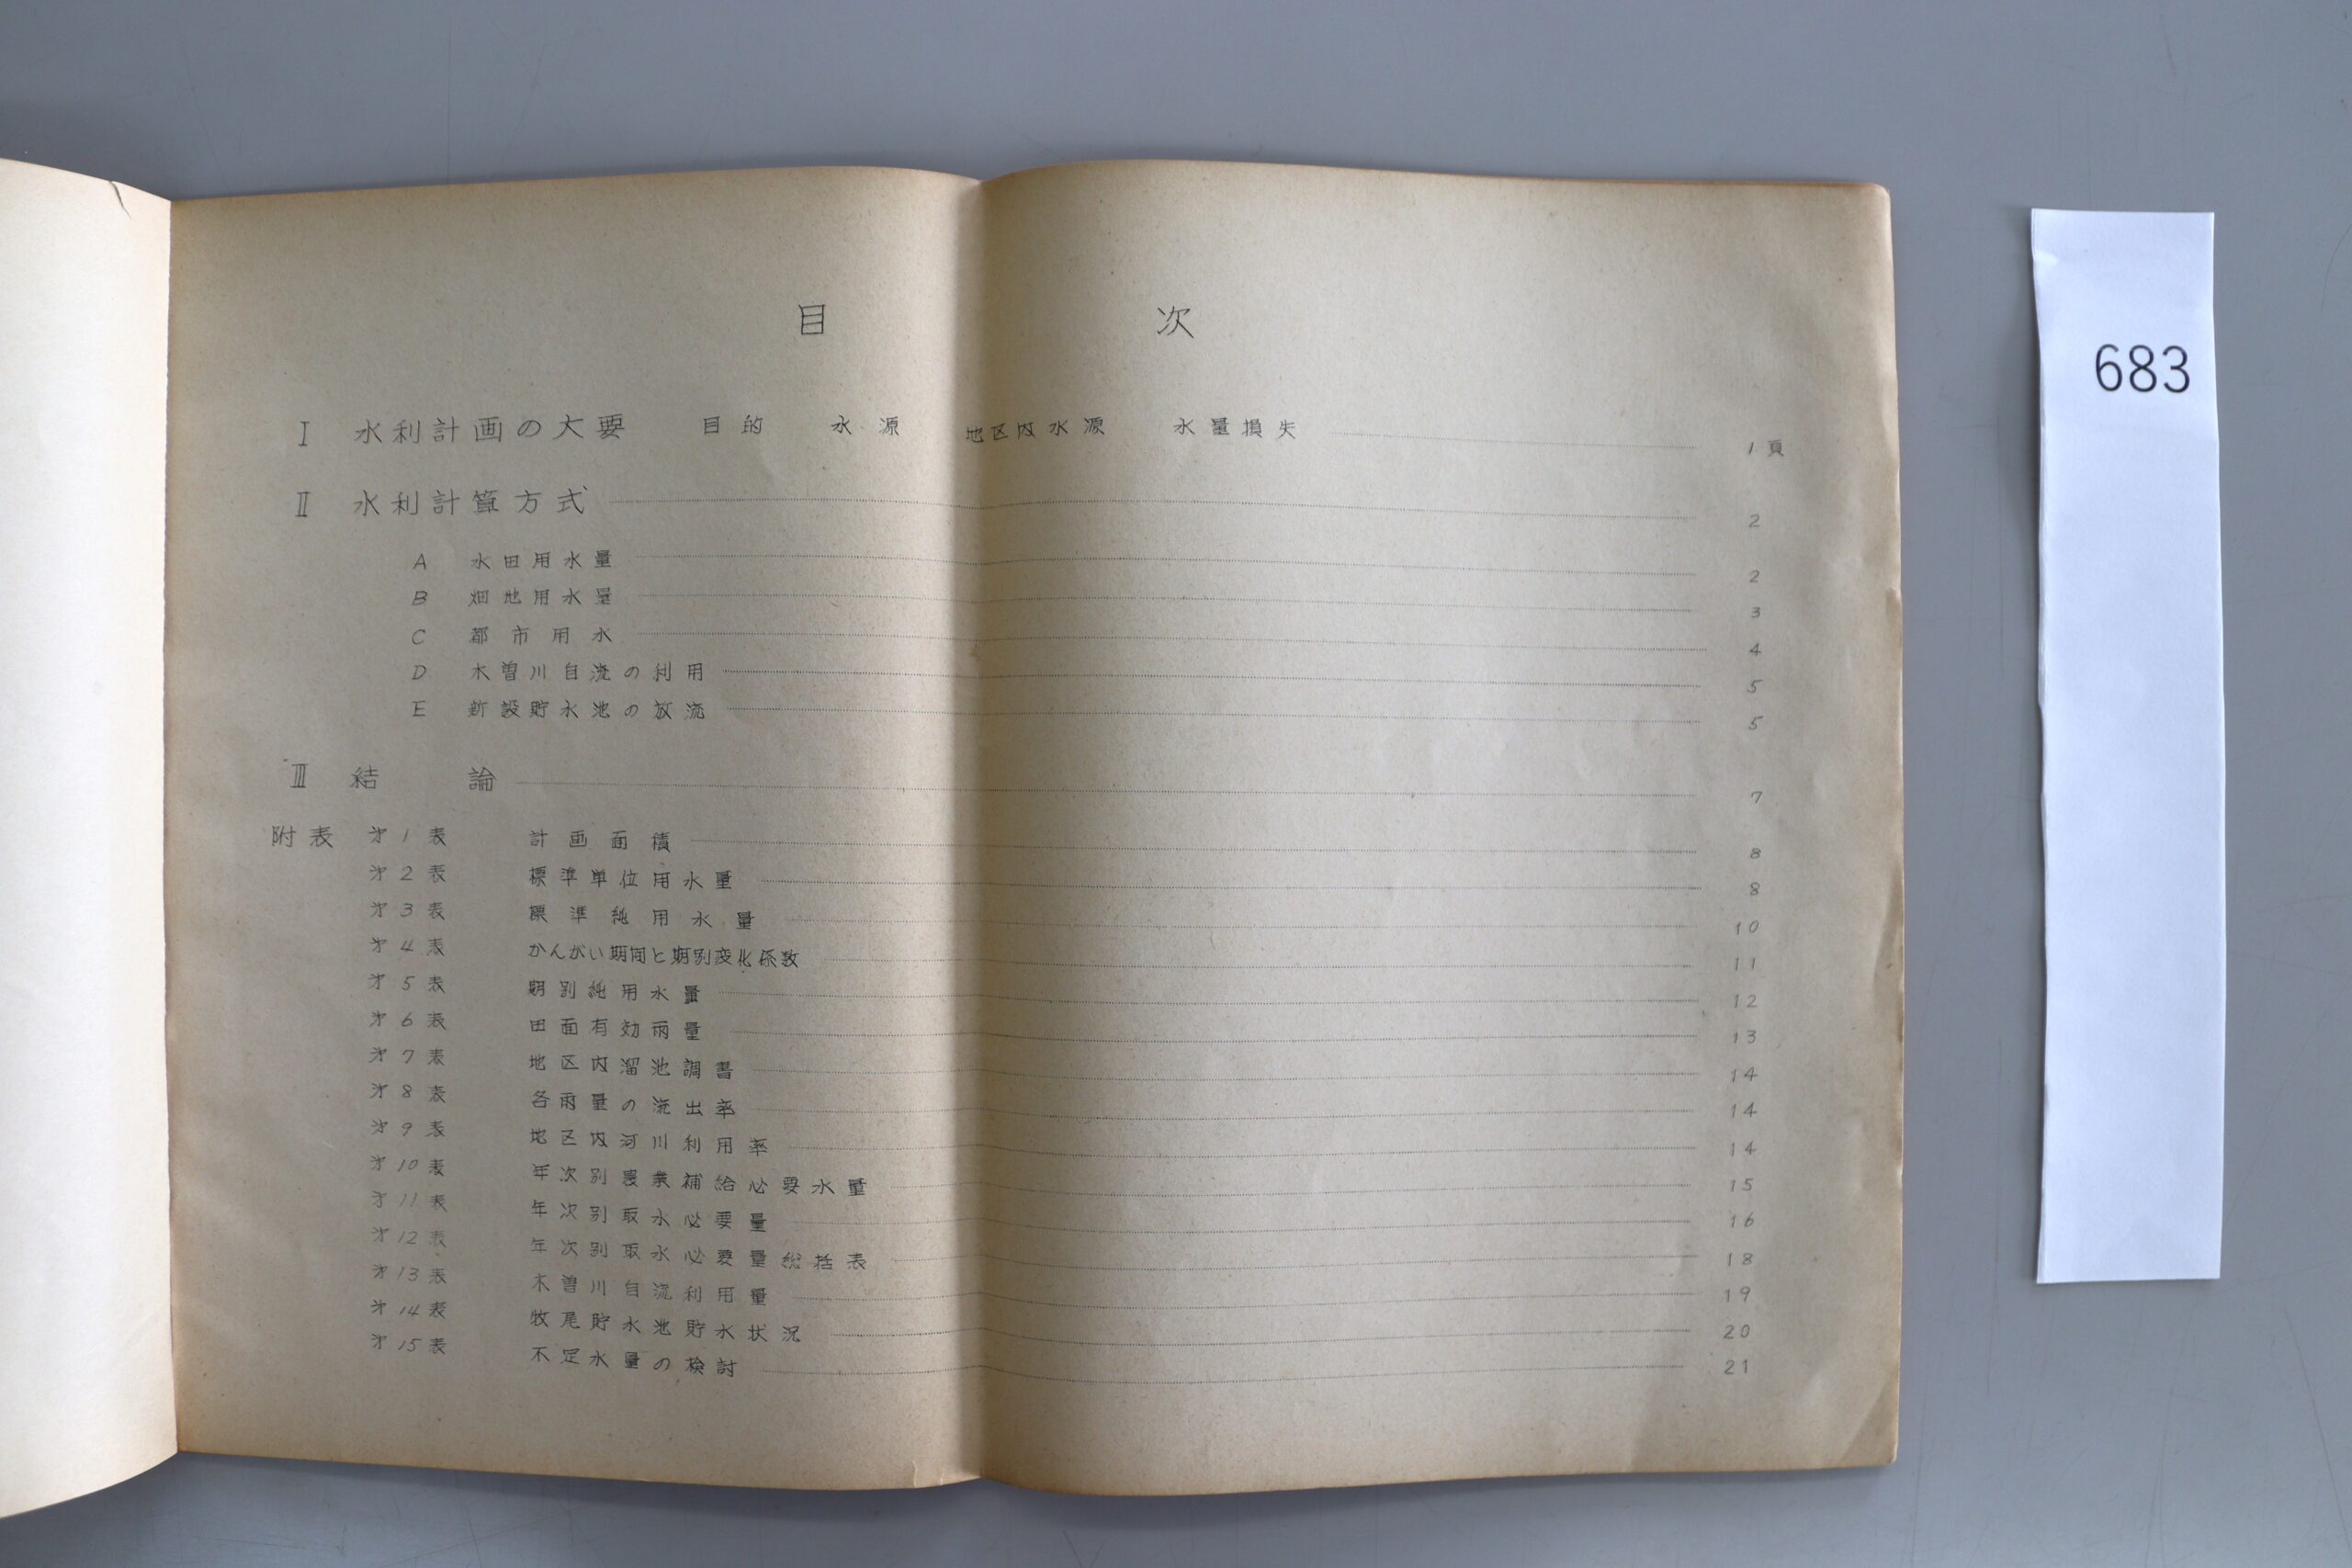 目 次
I 水利計画の大要 目的 水源 地区内水源 水量損失 1頁
II 水利計算方式 2
A 水田用水量 2
B 畑地用水量 3
C 都市用水 4
D 木曽川自流の利用 5
E 新設貯水池の放流 5
III 結論 7
附表 才1表 計画面積 8
才2表 標準単位用水量 8
才3表 標準純用水量 10
才4表 かんがい期間と期別変化係数 11
才5表 期別純用水量 12
才6表 田面有効雨量 13
才7表 地区内溜池調書 14
才8表 各雨量の流出率 14
才9表 地区内河川利用率 14
才10表 年次別農業補給必要水量 15
才11表 年次別取水必要量 16
才12表 年次別取水必要量総括表 18
才13表 木曽川自流利用量 19
才14表 牧尾貯水池貯水状況 20
才15表 不定水量の検討 21
683